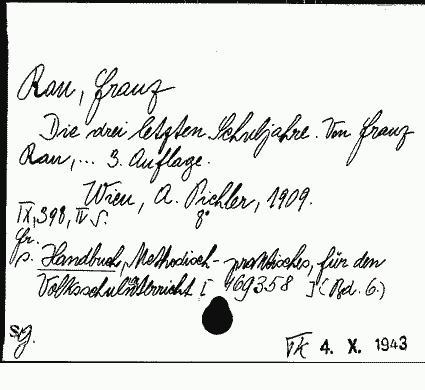 Rau, Franz
Die drei letzten Schuljahre. Von Franz
Rau,... 3. Auflage.
Wien, A. Pichler, 1909.
IX, 398, IV S. 8°
fr.
s. Handbuch, Methodisch-praktisches, für den
Volksschulunterricht [ 469358 ] (Bd. 6.)
sg.
4. X. 1943